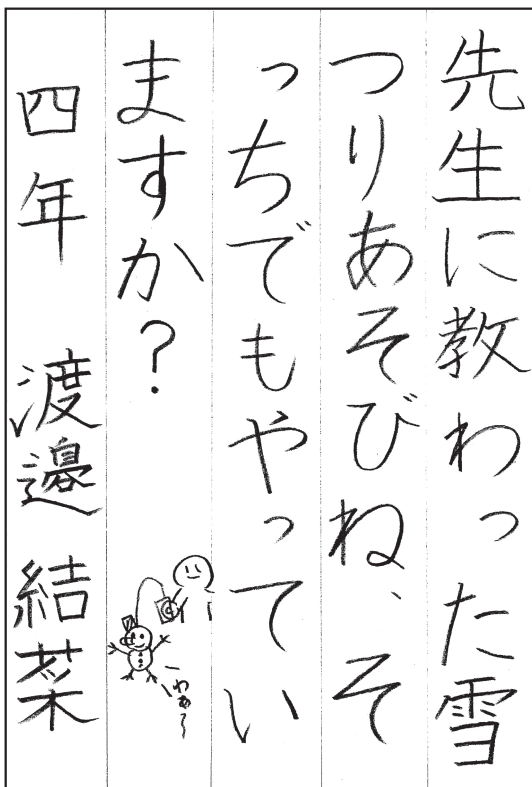 先生に教わった雪
つりあそびね、そ
っちでもやってい
ますか？
わぁ〜
四年 渡邉 結菜